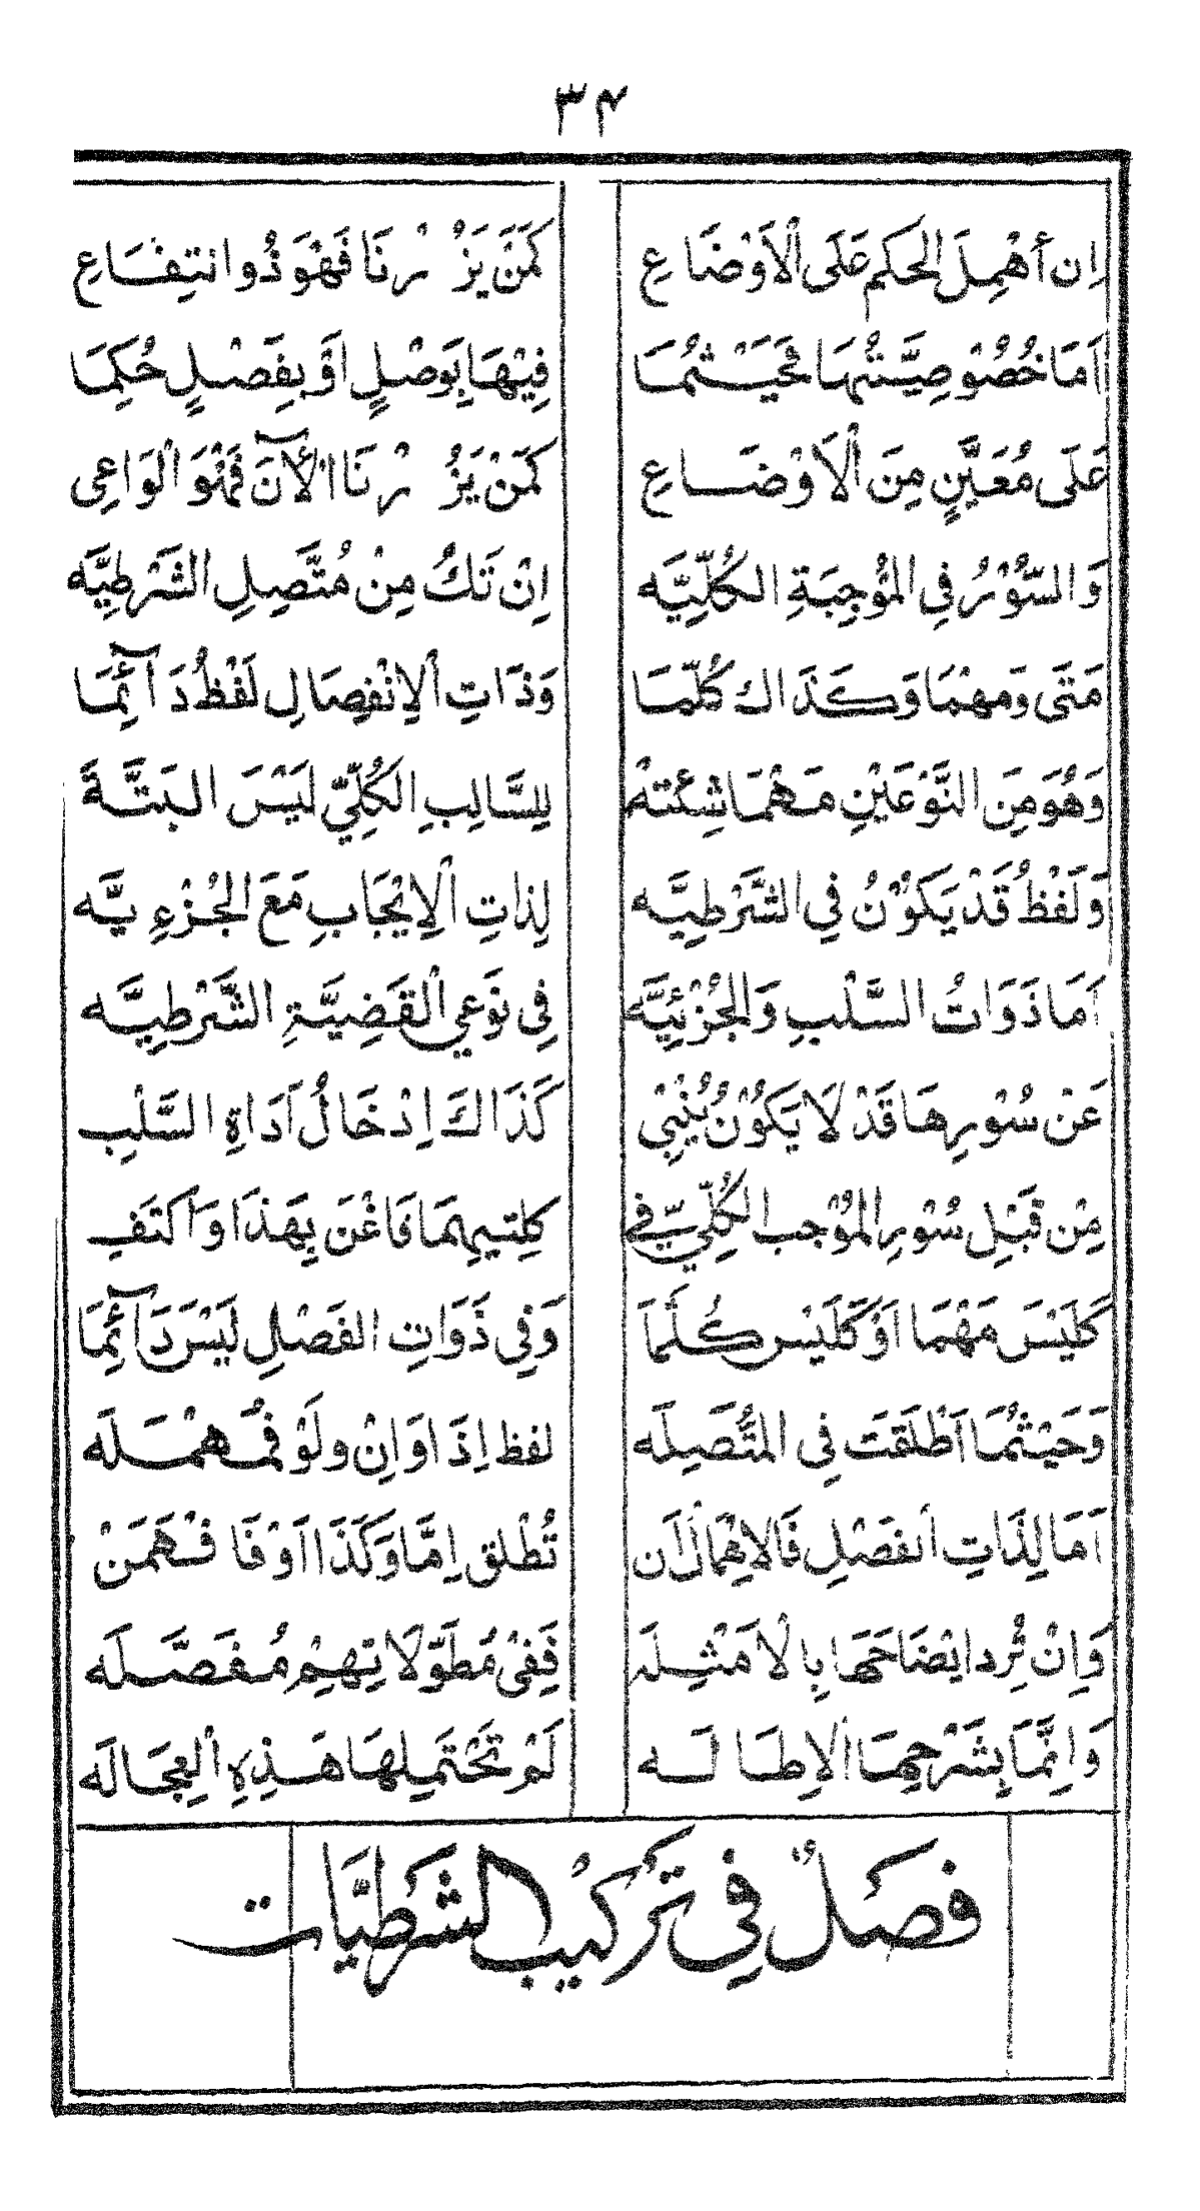 ٣٤
إِن أُهْمِلَ الحكم عَلَى الْاَوْضَاعِ كَمَنْ يَزُرْنَا فَهْوَ ذُو انتِفَاعِ
اَمَا خُصُوْصِيَّتُهَا فَحَيْثُمَا فِيْهَا بِوَصْلٍ اَوْ بِفَصْلٍ حُكِمَا
عَلَى مُعَيَّنٍ مِنَ الْاَوْضَاعِ كَمَنْ يَزُرْنَا الْاٰنَ فَهْوَ الْوَاعِى
وَالسُّوْرُ فِي الْمُوْجِبَةِ الكُلِّيَّه اِنْ تَكُ مِنْ مُتَّصِلِ الشَّرْطِيَّه
مَتَى وَمهْمَا وَكَذَاك كُلَّمَا وَذَاتِ الْاِنْفِصَالِ لَفْظُ دَآئِمَا
وَهُوَ مِنَ النَّوْعَيْنِ مَهْمَا شِئتهْ لِلسَّالِبِ الكُلِّيِّ لَيْسَ البَتَّةَ
وَلَفْظُ قَدْ يَكُوْنُ فِي الشَّرْطِيَّه لِذاتِ الْاِيْجَابِ مَعَ الجُزْءِيَّه
اَمَا ذَوَاتُ السَّلْبِ وَالجُزْئِيَّه فِى نَوْعَيِ الْقَضِيَّةِ الشَّرْطِيَّه
عَنْ سُوْرِهَا قَدْ لَا يَكُوْنُ يُنْبِيْ كَذَاكَ اِدْخَالُ اَدَاةِ السَّلْبِ
مِنْ قَبْلِ سُوْرِ المُوْجب الكُلِّيِّ فِي كِلتيهِمَا فَاغْنَ بِهَذَا وَاَكتَفِ
كَلَيْسَ مَهْمَا اَوْ كَلَيْس كُلَّمَا وَفِي ذَوَاتِ الفَصْلِ لَيْسَ دَآئِمَا
وَحَيْثُمَا اَطْلَقتَ فِى المُتَّصِلَه لفظ اِذَا وَاِنْ ولَوْ فَمُهْمَلَه
اَمَا لِذَاتِ انفَصْلِ فَالاِهْمَالُ اَن تُطْلق اِمَّا وَكَذَا اَوْ فَافْهَمَنْ
وَاِنْ تُرِد ايْضَاحَهَا بِالْاَمْثِلَه فَفِىْ مُطَوَّلَاتِهِمْ مُفَصَّلَه
وَاِنَّمَا بِشَرْحِهَا الْاِطَالَه لَمْ تَحْتَمِلهَا هَذِهِ الْعِجَالَه
فصَلٌ فِي تَركيْب الشَرطيَّات